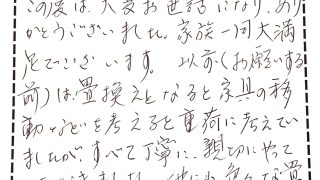 この度は、大変お世話になり、あり
がとうございました。家族一同大満
足でございます。 以前(お願いする
前)は畳換えとなると家具の移
動などを考えると重荷に考えてい
ましたが、すべて丁寧に、親切にやって